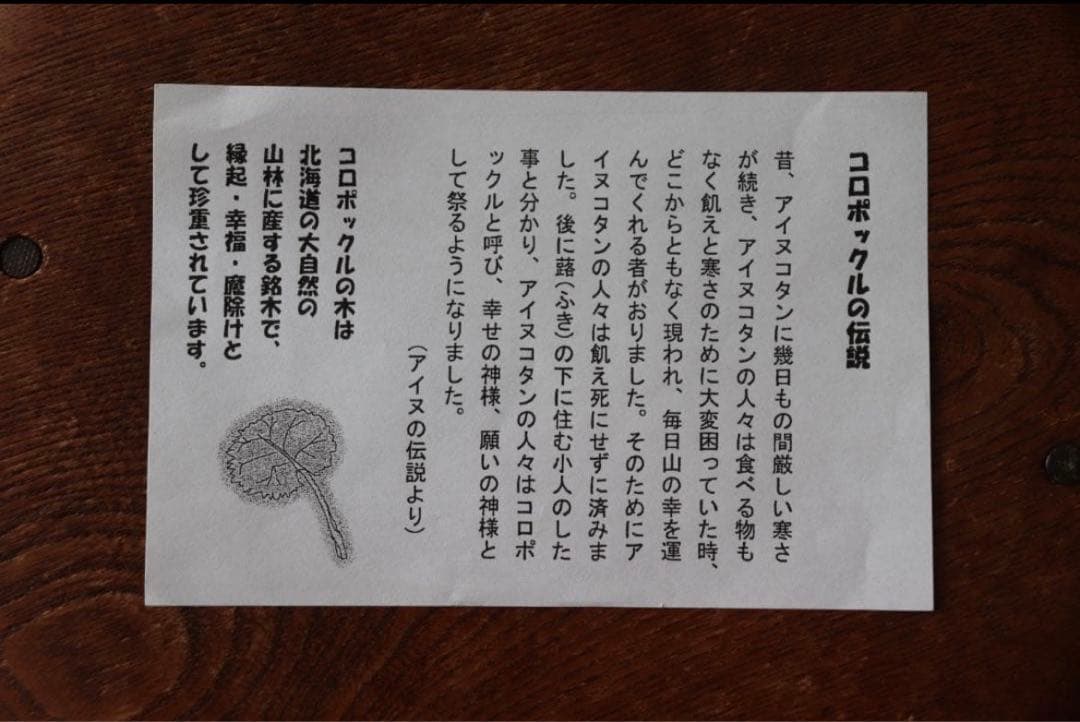 コロポックルの伝説
昔、アイヌコタンに幾日もの間厳しい寒さ
が続き、アイヌコタンの人々は食べる物も
なく飢えと寒さのために大変困っていた時、
どこからともなく現われ、毎日山の幸を運
んでくれる者がおりました。そのためにア
イヌコタンの人々は飢え死にせずに済みま
した。後に蕗(ふき)の下に住む小人のした
事と分かり、アイヌコタンの人々はコロポ
ックルと呼び、幸せの神様、願いの神様と
して祭るようになりました。
(アイヌの伝説より)
コロポックルの木は
北海道の大自然の
山林に産する銘木で、
縁起・幸福・魔除けと
して珍重されています。